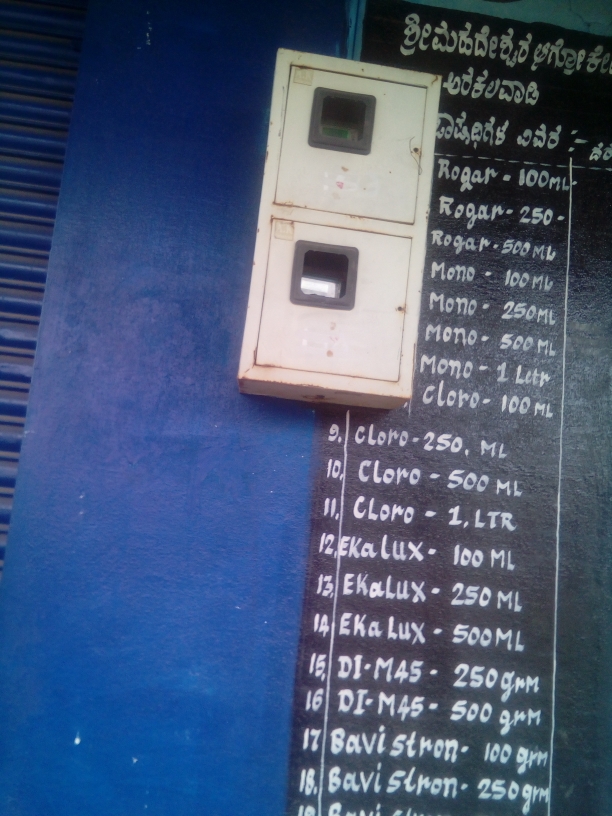 ಶ್ರೀಮಹದೇಶ್ವರ ಆಗ್ರೋಕೇ
ಅರಕಲವಾಡಿ
ವಿವರ :-
Rogar - 100ML-
Rogar - 250 -
Rogar - 500ML
Mono - 100ML
Mono - 250ML
Mono - 500ML
Mono - 1 Litr
Cloro - 100ML
9. Cloro - 250. ML
10. Cloro - 500 ML
11. Cloro - 1. LTR
12. EKalux - 100 ML
13. EKalux - 250 ML
14. EKalux - 500ML
15. DI-M45 - 250 grm
16 DI-M45 - 500 grm
17 Bavistron - 100 grm
18. Bavistron - 250 grm